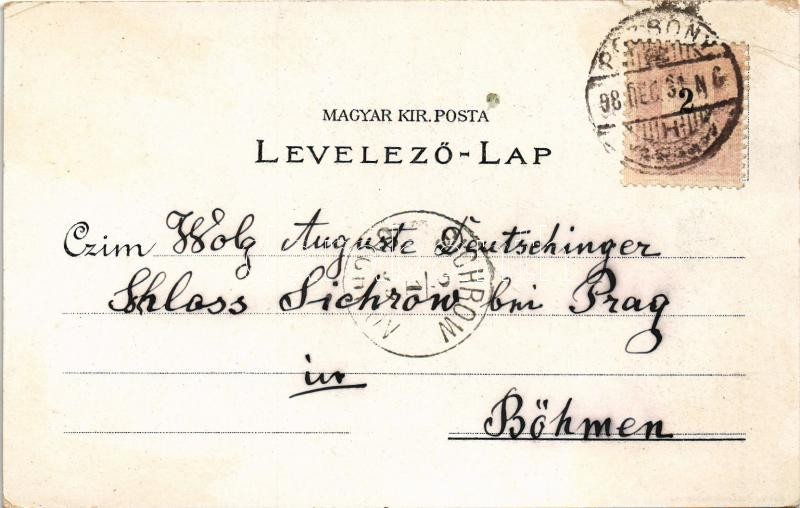 POZSONY
98 DEC. 31. N 6
2
MAGYAR KIR. POSTA
LEVELEZŐ-LAP
Czim Wolg Auguste Deutschinger
Schloss Sichrow bei Prag
SICHROW
in
Böhmen